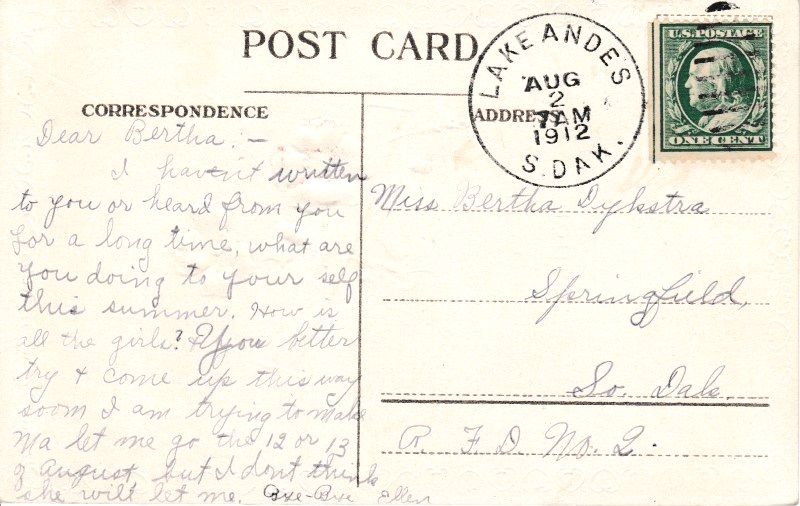 POST CARD
CORRESPONDENCE
ADDRESS
LAKE ANDES
AUG
2
7 AM
1912
S. DAK.
U.S. POSTAGE
ONE CENT
Dear Bertha; —
I havent written
to you or heard from you
for a long time, what are
you doing to your self
this summer. How is
all the girls? You better
try & come up this way
soom I am trying to make
Ma let me go the 12 or 13
of August, but I dont think
she will let me. Bye-Bye Ellen
Miss Bertha Dykstra
Springfield,
So. Dak.
R. F. D. No. 2.